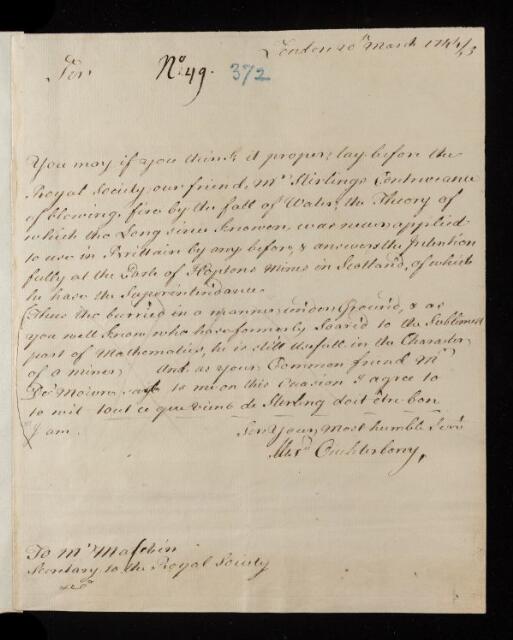 London 10th March 1744/5
Sir
No 49. 372
You may if you think it proper, lay before the
Royal Society, our friend, Mr Stirlings Contrivance
of blowing fire by the fall of Water, the Theory of
which tho Long since known, was never applied
to use in Brittain by any before, & answers the Intention
fully at the Earle of Hoptons Mines in Scotland, of which
he have the Superintendance.
Thus tho burried in a manner under Ground, & as
you well know who have formerly Soared to the Sublimest
part of Mathematics, he is still usefull in the Character
of a miner, And as your Common friend Mr
De Moivre, said to me on this Occasion I agree to
to wit tout ce que vient de Sterling doit être bon
I am
Sir Your Most humble Servt
Alexr
To Mr Machin
Secretary to the Royal Society